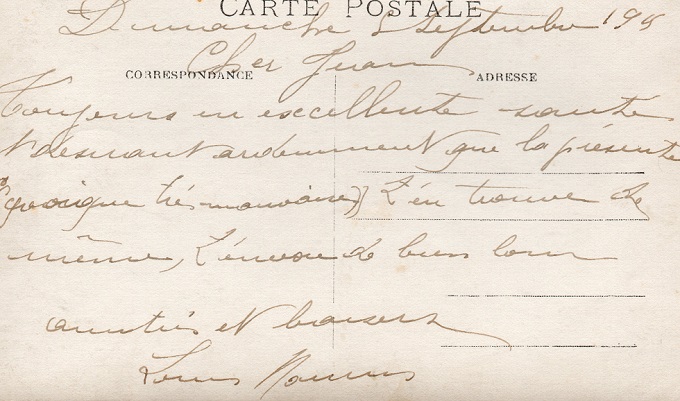 CARTE POSTALE
Dimanche 8 Septembre 191
Cher Juan
CORRESPONDANCE
ADRESSE
Toujours en excellente santé
désirant ardemment que la présente
(quoique très mauvaise) t'en trouve de
même, t'envoie de bien bons
amitiés et baisers
Louis